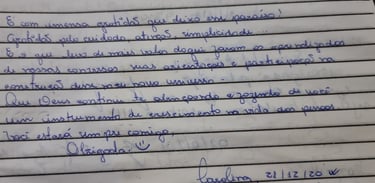 É com imensa gratidão que deixo esse paraíso!
Gratidão pelo cuidado, atenção, simplicidade...
E o que levo de mais valor daqui foram os aprendizados
de nossas conversas, suas orientações e participação na
construção desse meu novo universo.
Que Deus continue te abençoando e fazendo de você
um instrumento de crescimento na vida das pessoas
Você estará sempre comigo,
Obrigada!
Carolina 21/12/20